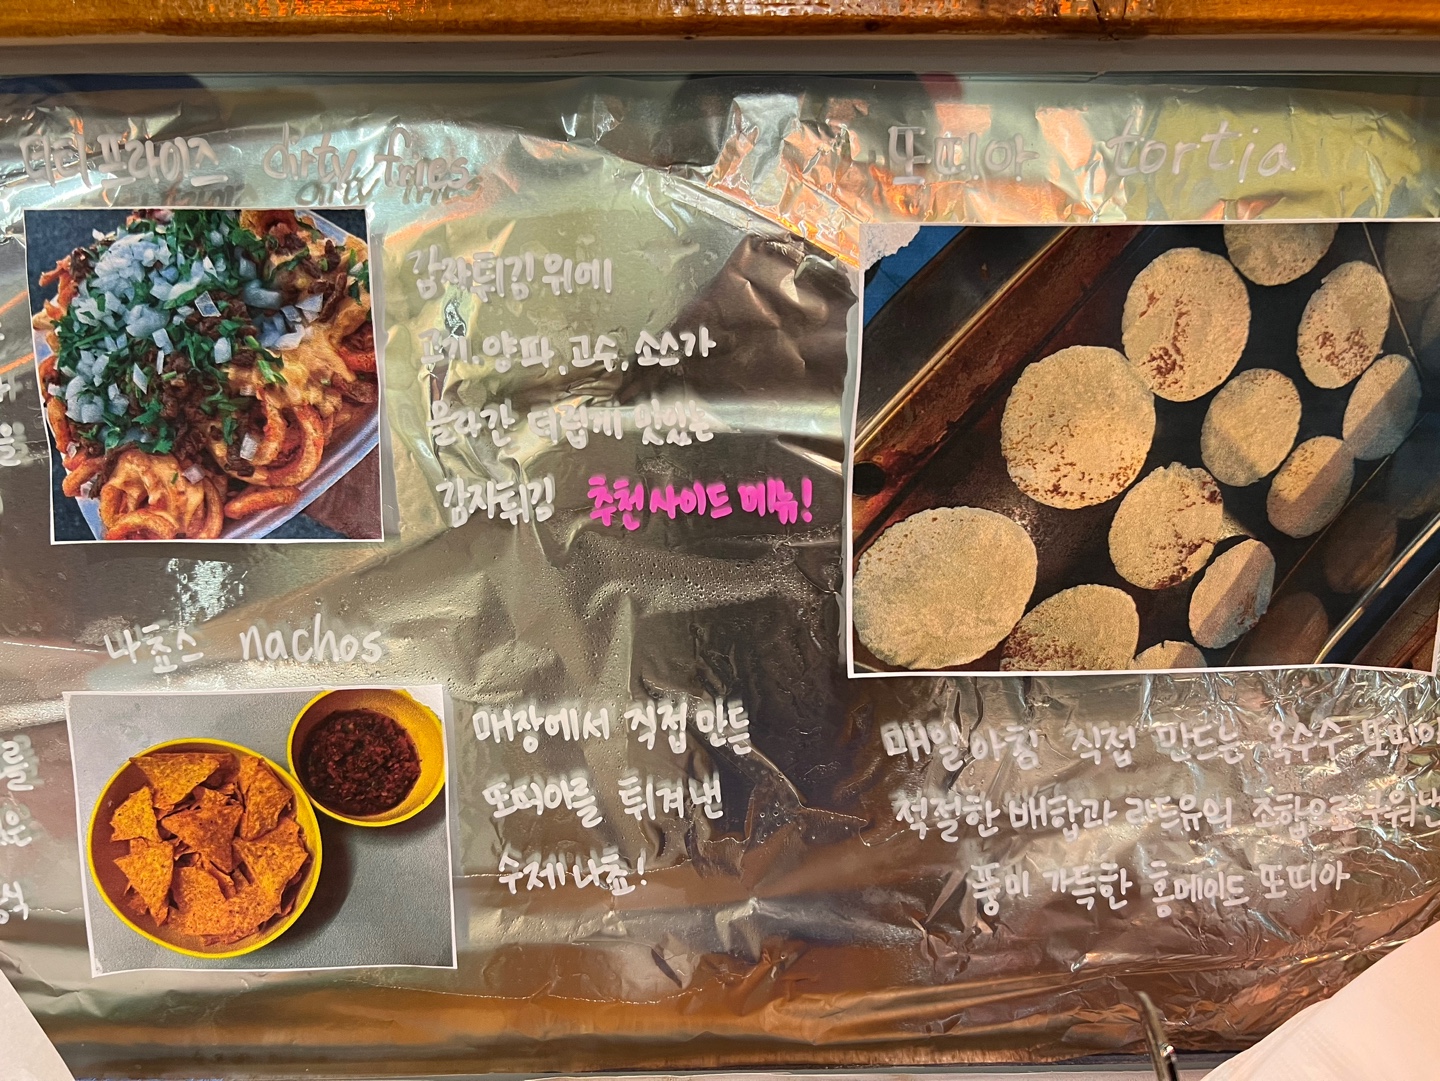 더티프라이즈 dirty fries
감자튀김 위에
고기, 양파, 고수, 소스가
올라간 더럽게 맛있는
감자튀김 추천 사이드 메뉴!
나쵸스 nachos
매장에서 직접 만든
또띠아를 튀겨 낸
수제 나쵸!
또띠아 tortia
매일 아침 직접 만드는 옥수수 또띠아
적절한 배합과 라드유의 조합으로 구워낸
풍미 가득한 홈메이드 또띠아